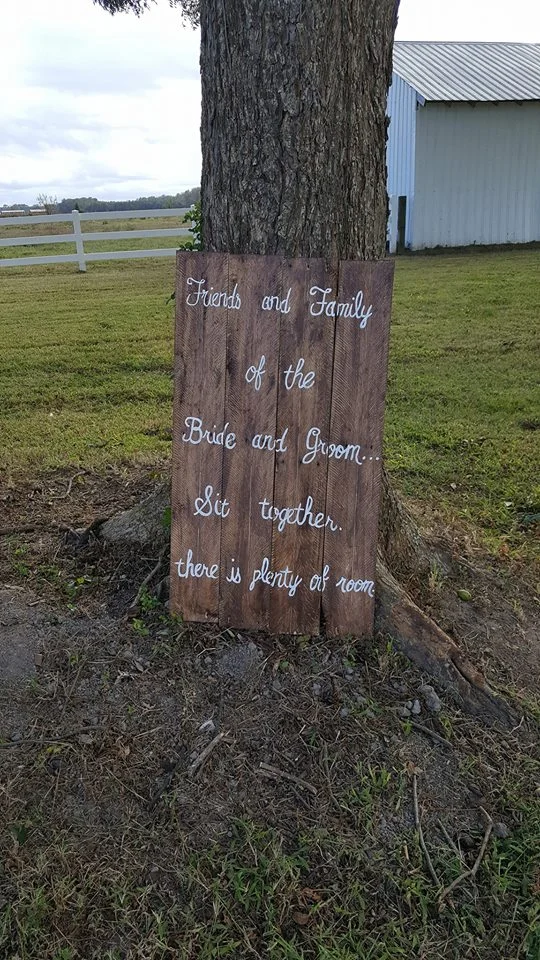 Friends and Family
of the
Bride and Groom...
Sit together.
there is plenty of room.